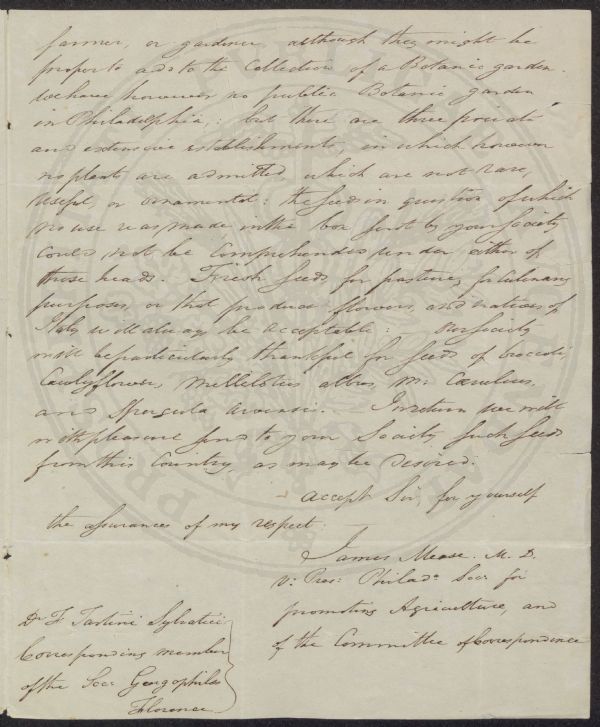 farmer, or gardener, although they might be
proper to add to the Collection of a Botanic garden.
We have however no public Botanic garden
in Philadelphia; but there are three private
and extensive establishments, in which however
no plants are admitted which are not rare,
useful, or ornamental: the seeds in question of which
no use was made in the box sent by your Society
could not be comprehended under either of
those heads. Fresh Seeds for pasture, for Culinary
purposes, or that produce flowers, and natives of
Italy will always be acceptable: our Society
will be particularly thankful for Seeds of broccoli,
Cauliflower, Mellilotus albus, M. Cæruleus,
and Spergula arvensis. In return we will
with pleasure send to your Society such Seeds
from this Country, as may be desired.
accept Sir, for yourself
the assurances of my respect.
James Mease. M. D.
V: Pres: Philada Soc: for
promoting Agriculture, and
of the Committee of Correspondence
Dr F Tartini Sylvatici
Corresponding member
of the Soc: Georgophilos
Florence